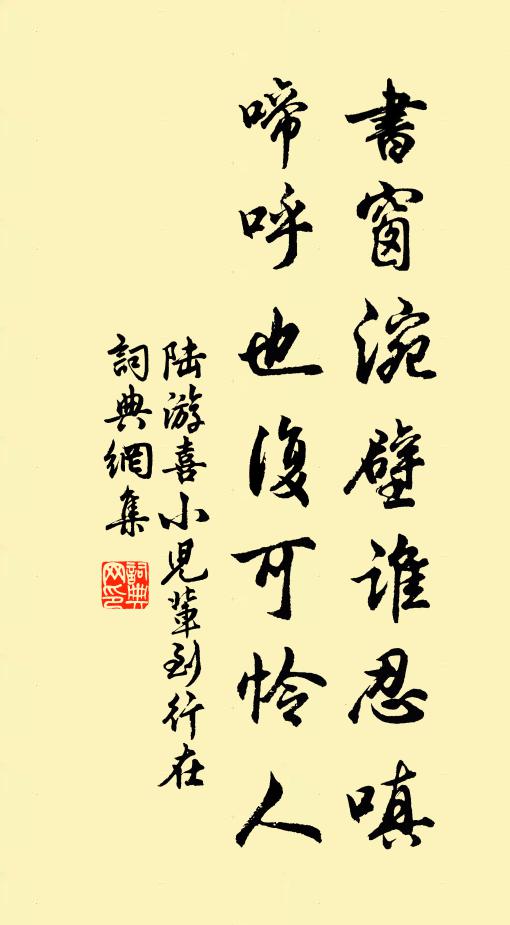 書窗涴壁誰忍嗔
啼呼也復可怜人
陆游喜小児輩到行在
詞典網集
詞典
网印